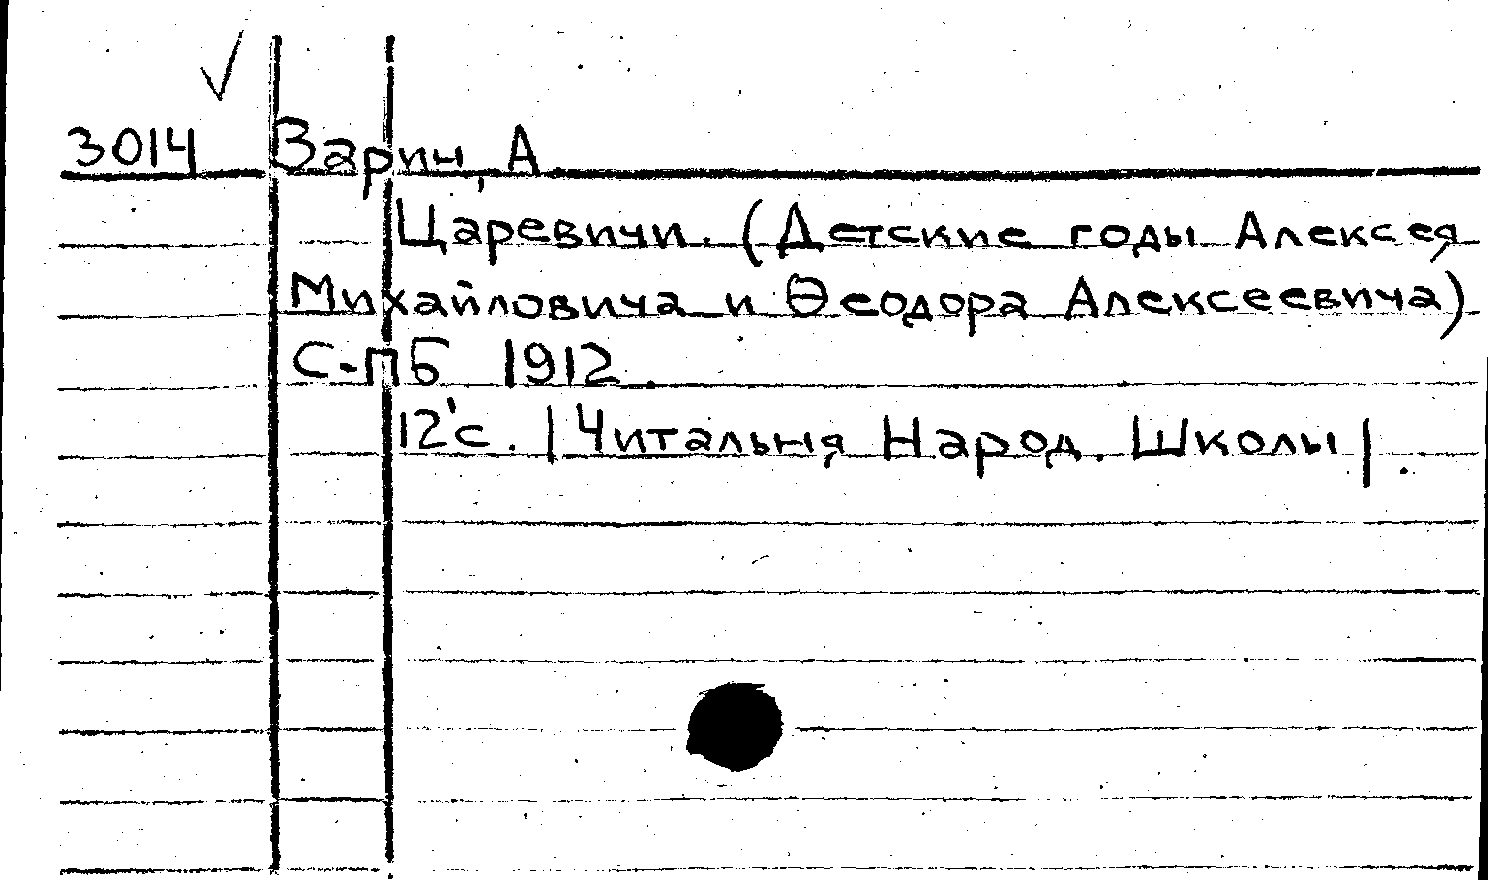 3014 Зарин, А.
Царевичи. (Детские годы Алексея
Михайловича и Ѳеодора Алексеевича)
С-ПБ 1912.
12'с. |Читальня Народ. Школы|.